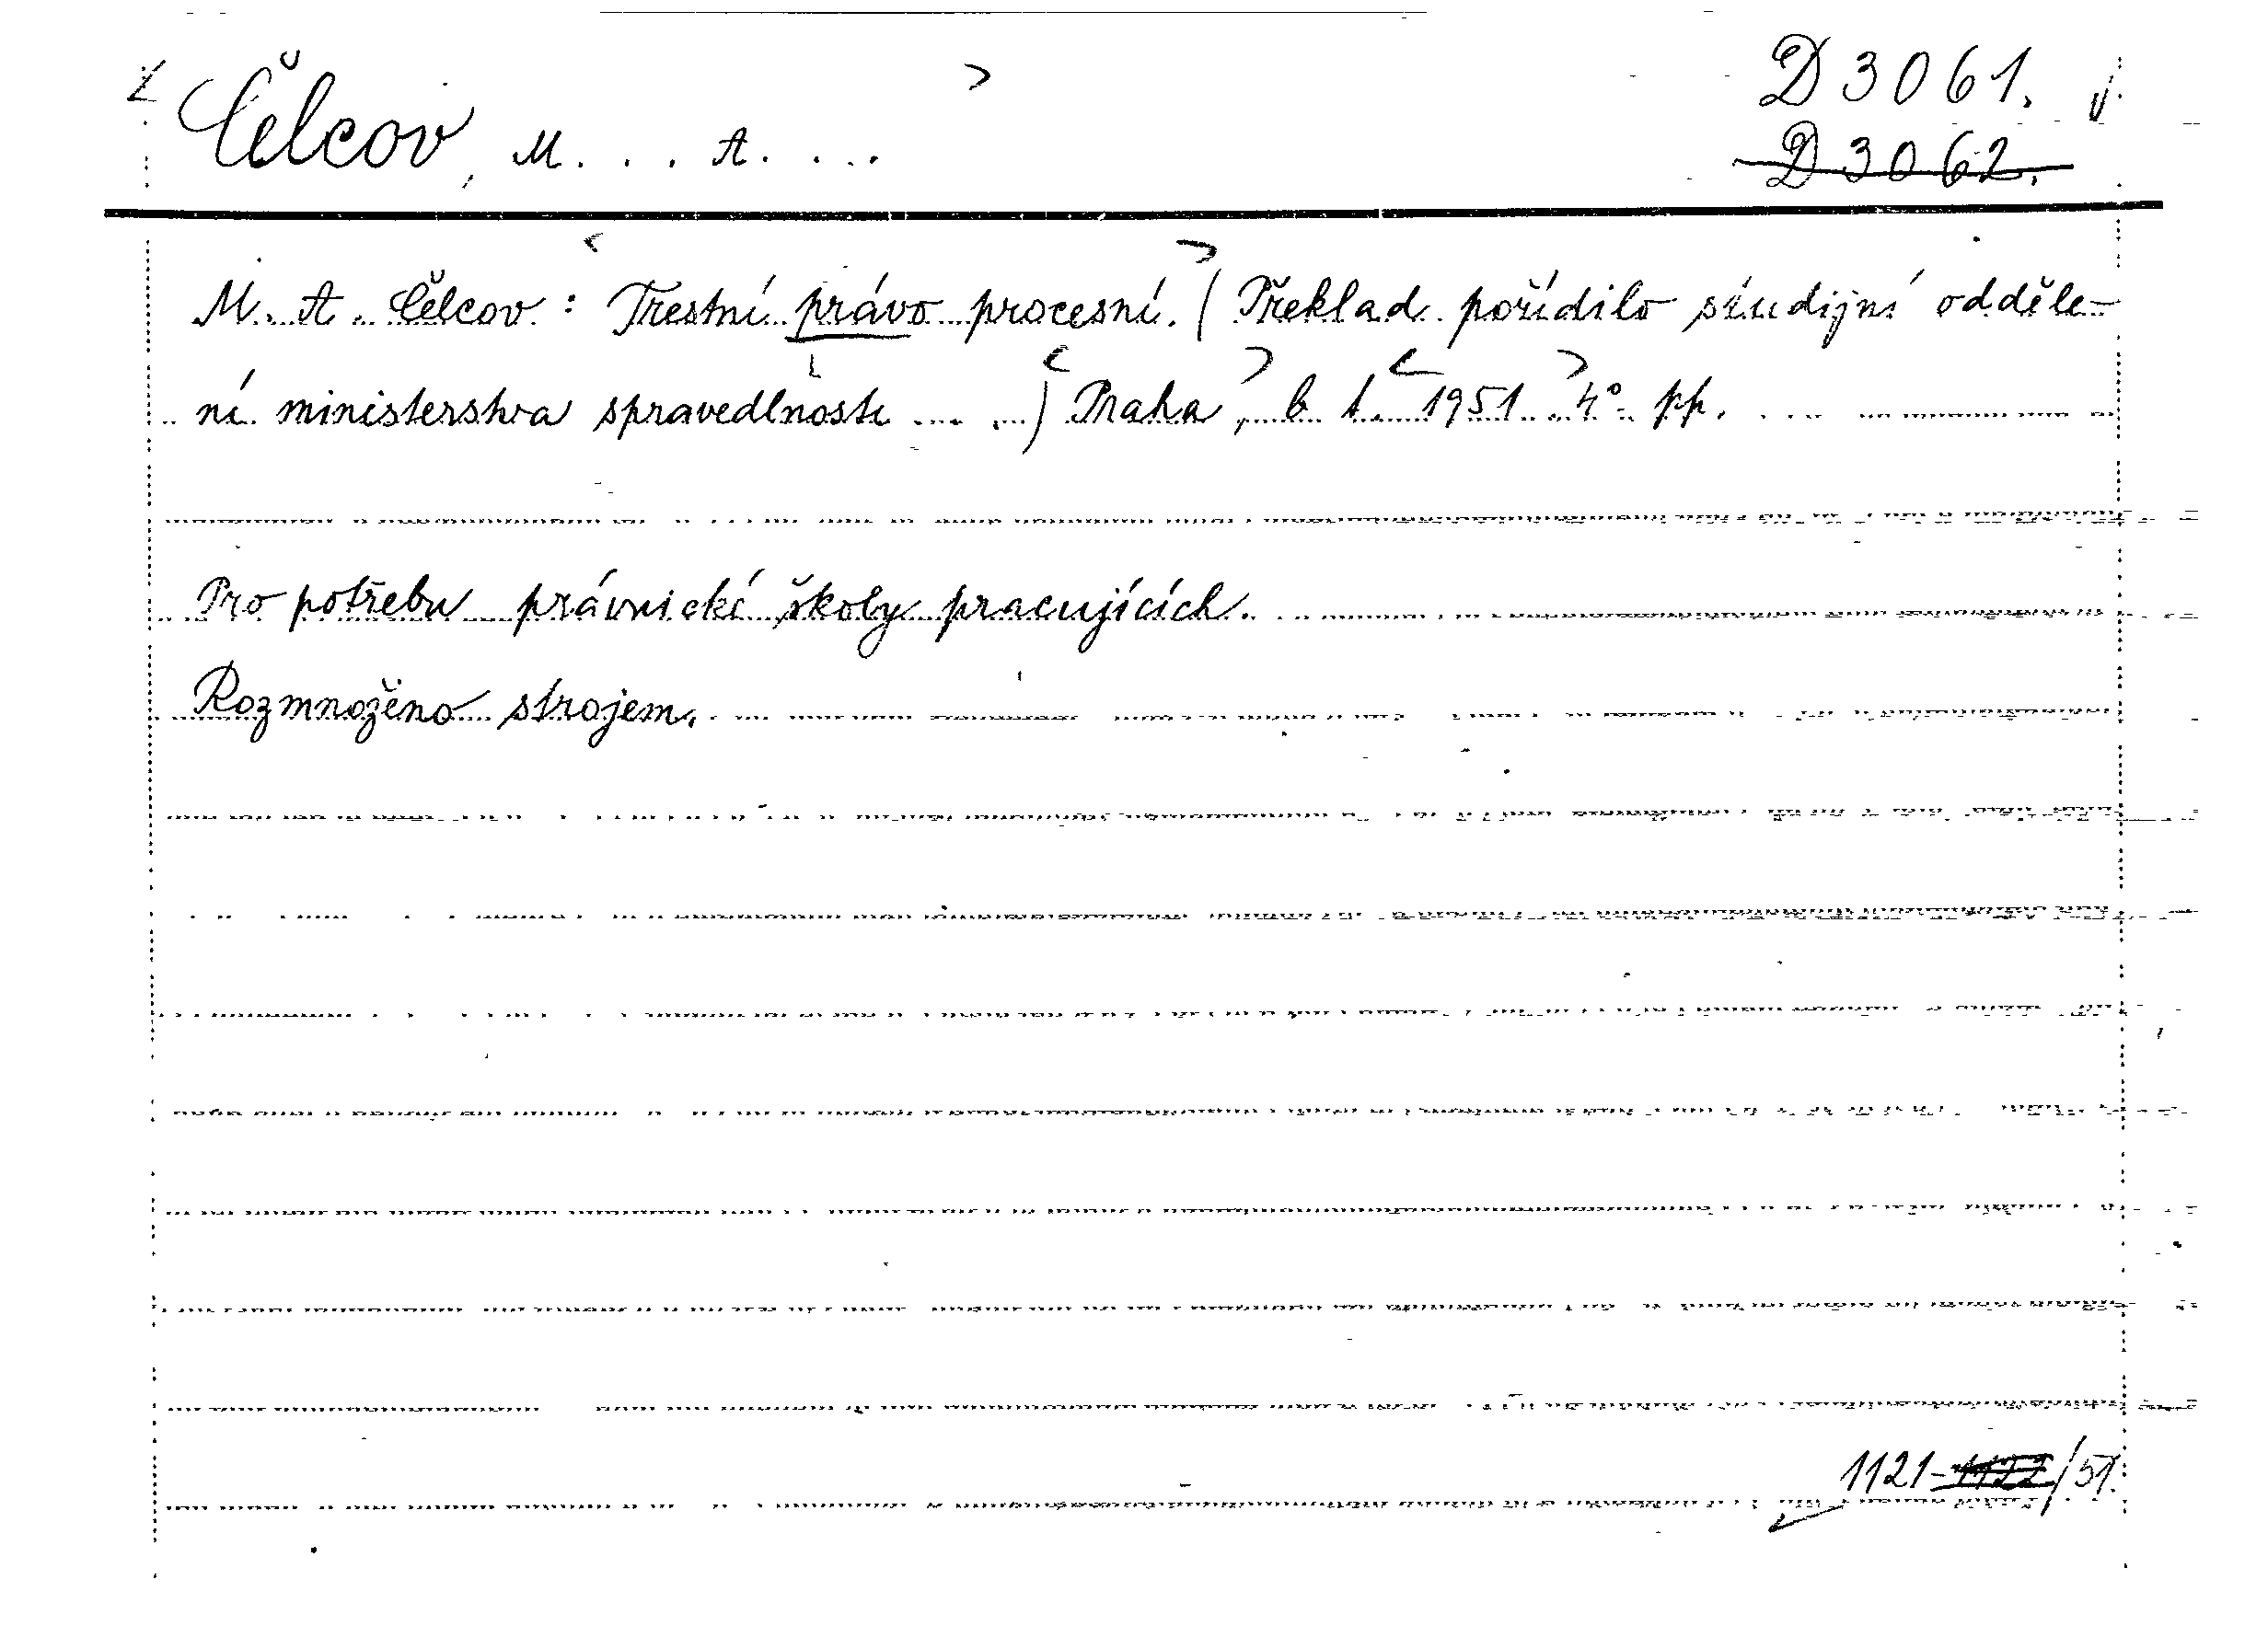 Čelcov, M... A....
D 3061.
D 3062.
M. A. Čelcov: Trestní právo procesní. (Překlad pořídilo studijní odděle-
ní ministerstva spravedlnosti ....) Praha, b. t. 1951. 4°. pp. ...
Pro potřebu právnické školy pracujících.
Rozmnoženo strojem.
1121-1122/51.